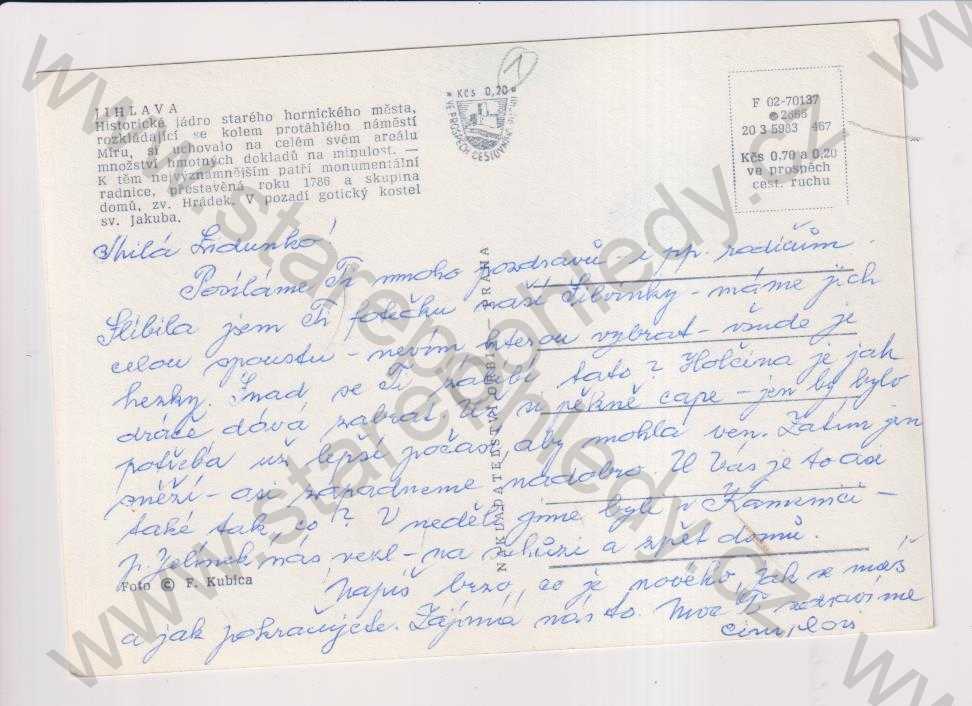 JIHLAVA
Historické jádro starého hornického města,
rozkládající se kolem protáhlého náměstí
Míru, si uchovalo na celém svém areálu
množství hmotných dokladů na minulost. —
K těm nejvýznamnějším patří monumentální
radnice, přestavěná roku 1786 a skupina
domů, zv. Hrádek. V pozadí gotický kostel
sv. Jakuba.
* Kčs 0,20 *
VE PROSPĚCH CESTOVNÍHO RUCHU
1
F 02-70137
20 3 5983 467
Kčs 0.70 a 0,20
ve prospěch
cest. ruchu
Milá Zdunko!
Posíláme Ti mnoho pozdravů - i pp. rodičům.
Slíbila jsem Ti fotečku naší Silvinky - máme jich
celou spoustu - nevím kterou vybrat - všude je
hezky. Snad se Ti zalíbí tato? Holčina je jak
dráče dává zabrat. Už si pěkně cape - jen by bylo
potřeba už lepší počasí, aby mohla ven. Zatím jen
sněží - asi zapadneme nadobro. U Vás je to asi
také tak, co? V neděli jsme byli v Kamenici -
p. Jelínek nás vezl - na schůzi a zpět domů.
Napiš brzo, co je nového, jak se máš
a jak pokračujete. Zajímá nás to. Moc Tě zdravíme
NAKLADATELSTVÍ ORBIS — PRAHA
Foto © F. Kubica
www.starepohledy.cz
www.starepohledy.cz